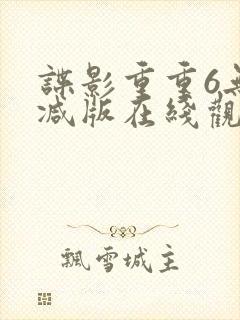 諜影重重6無
減版在綫觀
飄雪城主